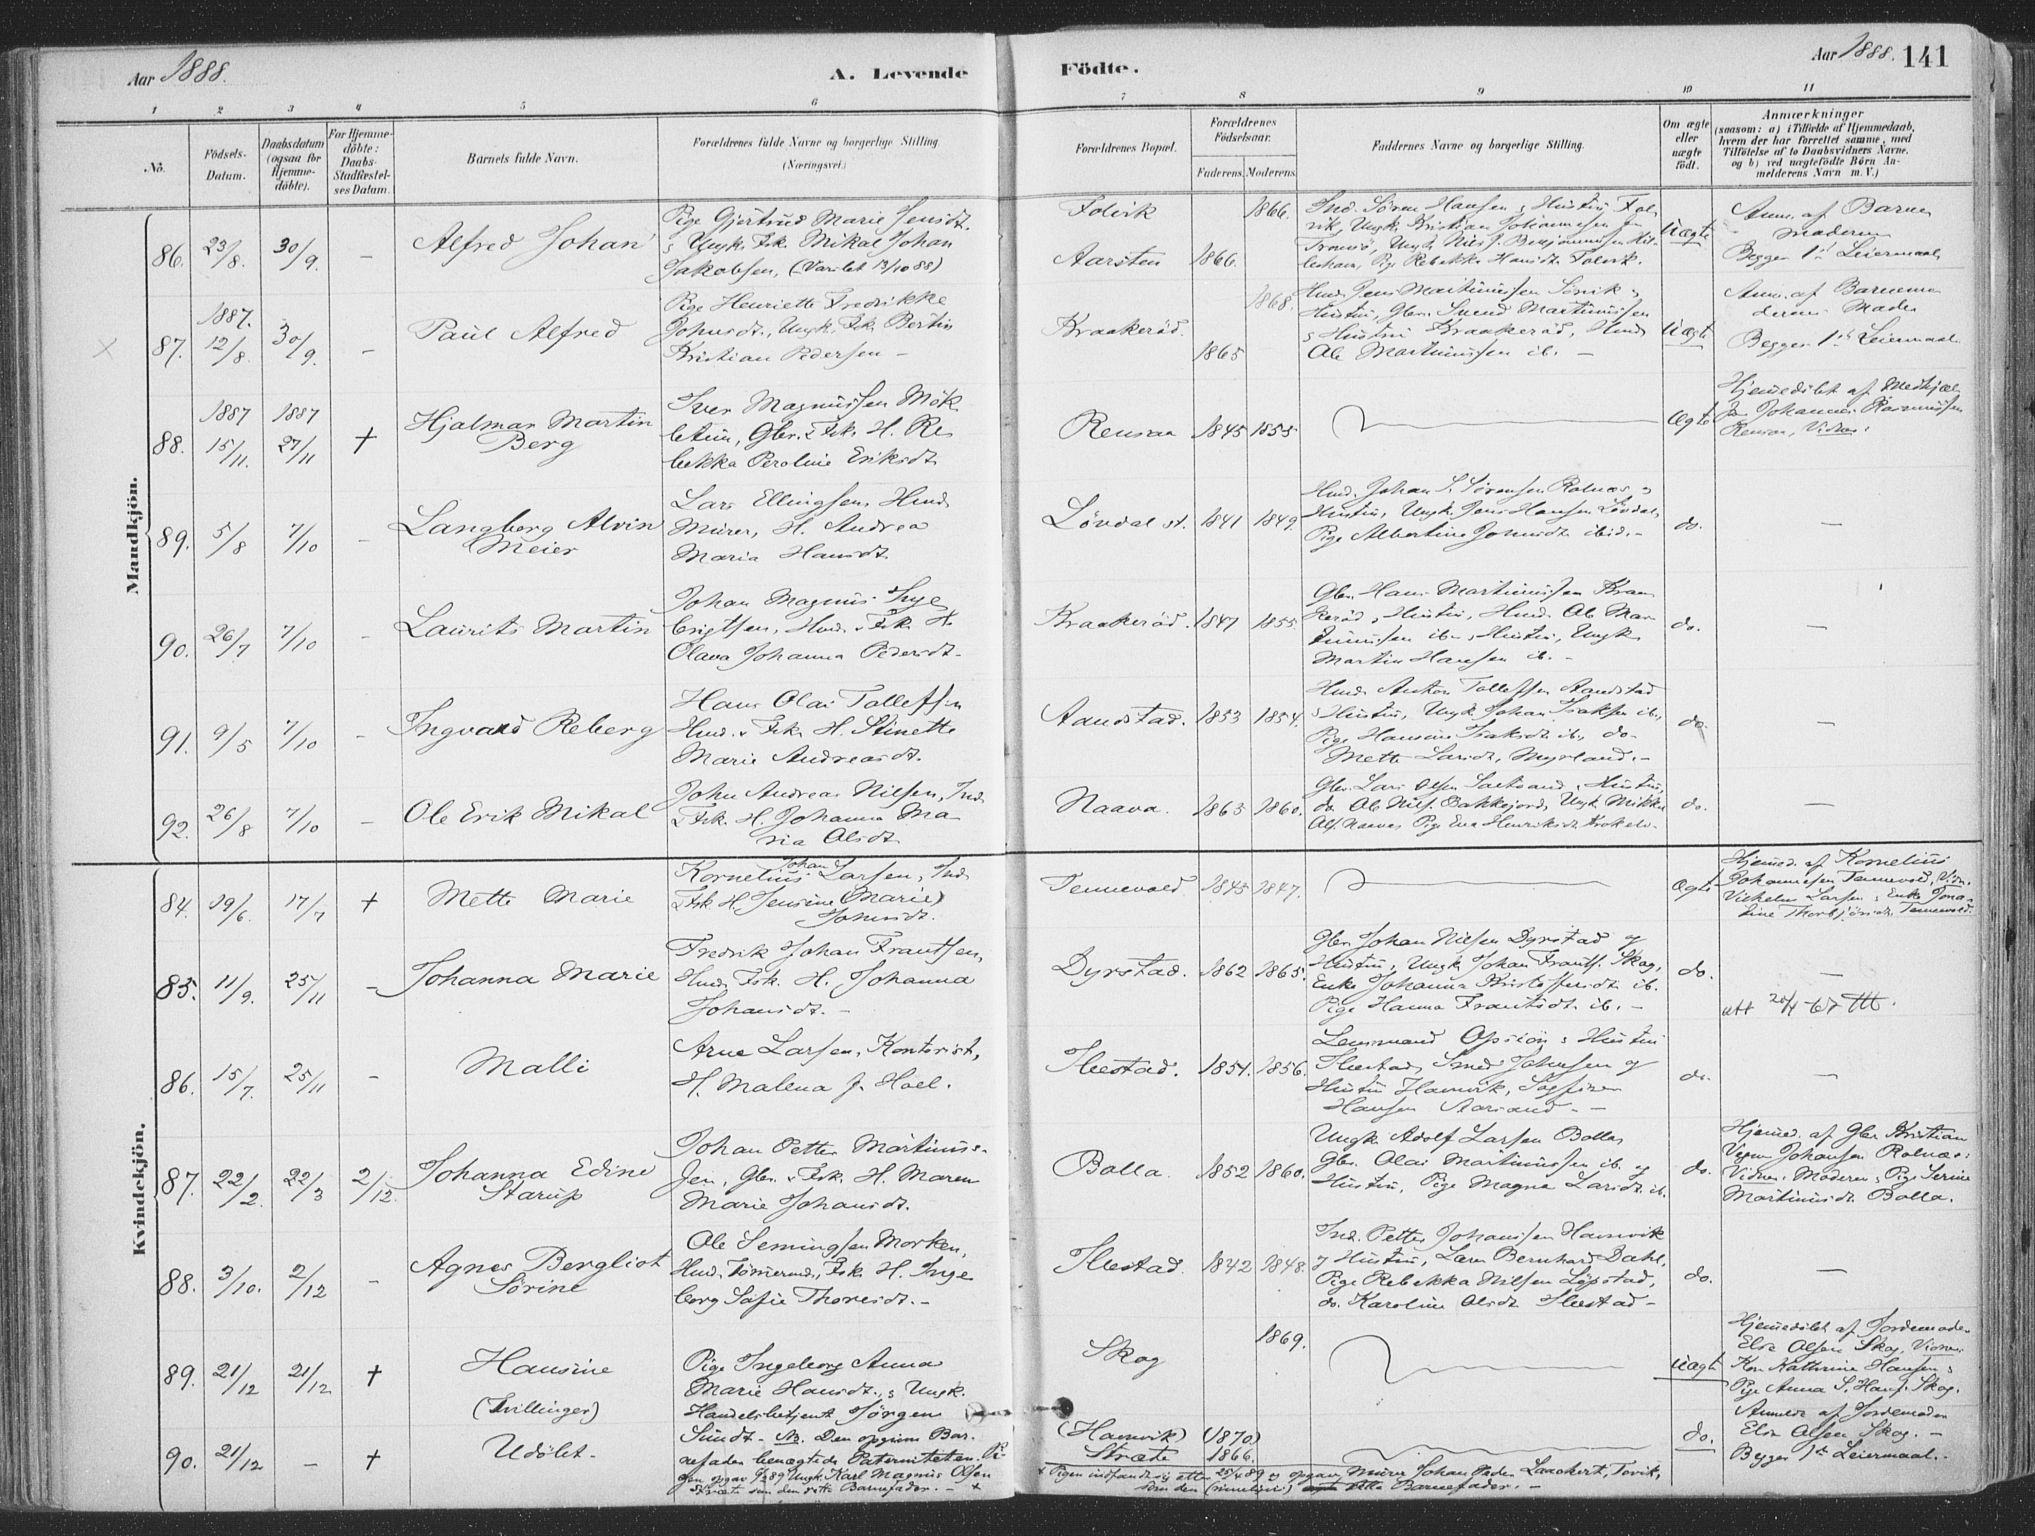 Aar 1888.
A. Levende
Födte.
Aar 1888. 141
1 2 3 4 5 6 7 8 9 10 11
No.
Födsels-
Datum.
Daabsdatum
(ogsaa for
Hjemme-
döbte).
For Hjemme-
döbte:
Daabs-
Stadfæstel-
ses Datum.
Barnets fulde Navn.
Forældrenes fulde Navne og borgerlige Stilling
(Næringsvei.)
Forældrenes Bopæl.
Forældrenes
Födselsaar.
Faderens. Moderens.
Faddernes Navne og borgerlige Stilling.
Om ægte
eller
uægte
födt.
Anmærkninger
(saasom: a) i Tilfælde af Hjemmedaab,
hvem der har forrettet samme, med
Tilföielse af to Daabsvidners Navne,
og b) ved uægtefödte Börn An-
melderens Navn m. V.)
Mandkjön.
86. 23/8. 30/9. - Alfred Johan
Pige Gjertrud Marie Jensdt.
& Ungk. Fsk. Mikal Johan
Jakobsen, (Varslet 13/10 88)
Folvik
Aarsten
1866. 1866.
Ind. Sören Hansen & Hustru Fol-
vik, Ungk. Kristian Johannesen fra
Tromsö, Ungk. Nils J. Benjaminsen
Pige Rebekka Hansdt. Folvik.
Uægte
Anm. af Barne
moderen
Begges 1ste Leiermaal
87. 1887. 12/8. 30/9. - Paul Alfred
Pige Henriette Fredrikke
Johnsdt., Ungk. Fsk. Bertin
Kristian Pedersen -
Kraakeröd.
1865 1868.
Hmd. Jens Martinussen &
Hustru, Gbr. Svend Martinussen
& Hustru Kraakeröd, Hmd.
Ole Martinussen ib. -
Uægte
Anm. af Barnemo
deren
Begges 1ste Leiermaal
88. 1887 15/11. 1887 27/11 + Hjalmar Martin
Berg
Iver Magnussen Mök-
letun, Gbr. & Fsk. H. Re-
bekka Peroline Eriksdt.
Rensaa 1845 1855.
Ægte
Hjemedöbt af
Johannes Rasmussen
Rensaa, Vidner:
89. 5/8 7/10 - Langberg Alvin
Meier
Lars Ellingsen, Hmd.
Murer, H. Andrea
Maria Hansdt.
Lövdal 1841 1849.
Hmd. Johan S. Sörensen Rolnæs &
Hustru, Ungk. Jens Hansen Lövdal,
Pige Albertine Johnsdt. ibid. -
do. -
90. 26/7 7/10 - Laurits Martin
Johan Magnus Inge-
brigtsen, Hmd. & Fsk. H.
Olava Johanna Pedersdt. -
Kraakeröd. 1847 1855.
Gbr. Hans Martinussen Kraa-
keröd & Hustru, Hmd. Ole Mar-
tinussen ib. & Hustru, Ungk.
Martin Hansen ib. -
do. -
91. 9/5 7/10 - Ingvald Reberg
Hans Olai Tollefsen
Hmd. & Fsk. H. Stinette
Marie Andreasdt.
Aandstad. 1853 1854.
Hmd. Anton Tollefsen Aandstad
& Hustru, Ungk. Johan Isaksen ib.,
Pige Hansine Isaksdt. ib., do.
Mette Larsdt. Myrland. -
do. -
92. 26/8 7/10 - Ole Erik Mikal
John Andreas Nilsen, Ind.
& Fsk. H. Johanna Ma-
ria Olsdt.
Naava. 1863 1860.
Gbr. Lars Olsen & Hustru,
do. Ole Nils. Bakkejord, Ungk. Mikkel
Ols. Naava, Pige Eva Henriksdt.
do. -
Kvindekjön.
84. 19/6. 17/7 + Mette Marie
Kornelius Johan Larsen, Ind.
& Fsk. H. Jensine (Marie)
Johnsdt.
Tennevold 1845 1847.
Ægte
Hjemed. af Kornelius
Johannesen Tennevold, Vidn.
Vilhelm Larsen & Enke Jona-
Tennevold.
85. 11/9. 25/11 - Johanna Marie
Fredrik Johan Frantsen,
Hmd. Fsk. H. Johanna
Johansdt. -
Dyrstad. 1862 1865.
Gbr. Johan Nilsen Dyrstad og
Hustru, Ungk. Johan Frants. Skog,
Enke Johanna Kristoffersdt. ib.
Pige Hanna Frantsdt. ib. -
do. -
att
86. 15/7. 25/11 - Malli
Arne Larsen, Kontorist,
H. Malena J. Hoel.
Ibestad. 1854. 1856.
Lensmand & Hustru
Ibestad, Smed Johnsen og
Hustru Hamnvik, Sagförer
Hansen
do. -
87. 22/2. 22/3 2/12. Johanna Edine
Starup
Johan Petter Martinus-
sen, Gbr. & Fsk. H. Maren
Marie Johansdt.
Bolla. 1852 1860.
Ungk. Adolf Larsen Bolla,
Gbr. Olai Martinussen ib. og
Hustru, Pige Magna Larsdt. ib.
do.
Hjemed. af Gbr. Kristian
Johansen Rolnæs:
Vidner: Moderen & Pige Serine
Martinusdt. Bolla.
88. 3/10. 2/12 - Agnes Bergliot
Sörine
Ole Semingsen Morken,
Hmd. Tömmermd., Fsk. H. Inge-
borg Sofie Thoresdt. -
Ibestad. 1842 1848.
Ind. Petter Johanssen Hamnvik
& Hustru, Læn. Bernhard Dahl,
Pige Rebekka Nilsen Löpstad,
do. Karoline Olsdt. Ibestad -
do. -
89. 21/12 21/12 + Hansine
(Tvillinger)
Pige Ingeborg Anna
Marie Hansdt., & Ungk.
Handelsbetjent Jörgen
Sundt. - NB. Den opgivne Bar-
nefader benægtede Paterniteten. Pi-
gen opgav 6/2 89 Ungk. Karl Magnus Olsen
Stræte som den rette Barnefader. - +
Skog
1869.
Uægt
Hjemedöbt af Jordemoder
Else Olsen Skog. Vidner
Kone Kathrine Hansen &
Pige Anna S. Hans. Skog.
90. 21/12 - + Udöbt -
(Hamnvik) (1870.)
Stræte 1866.
do.
Anmeldt af Jordemoder
Else Olsen Skog. -
Begges 1ste Leiermaal. -
+ Pigen indfandt sig etter 25/4 89 og opgav Murer Johan Peder Tovik,
som den rette Barnefader. -